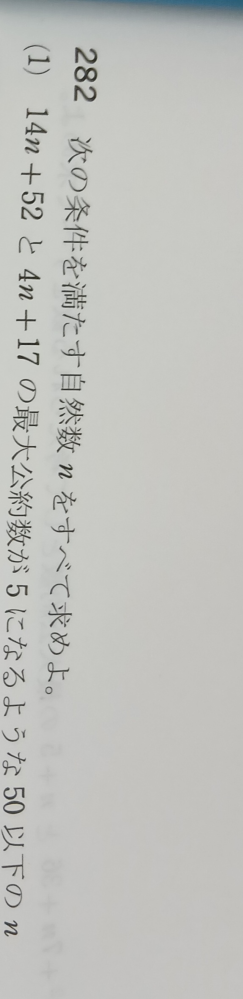 282 次の条件を満たす自然数 n をすべて求めよ。
(1) 14n+52 と 4n+17 の最大公約数が 5 になるような 50 以下の n